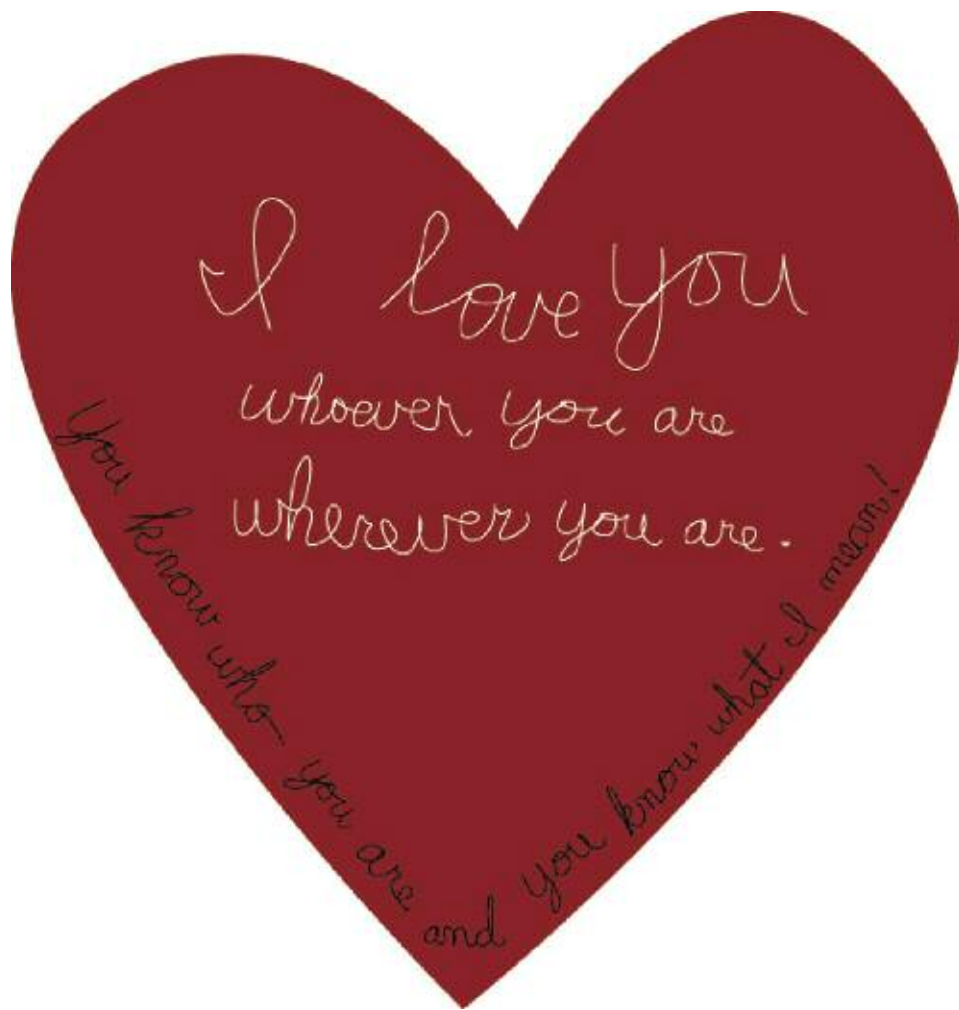 I love you
whoever you are
wherever you are.
You know who you are and you know what I mean!